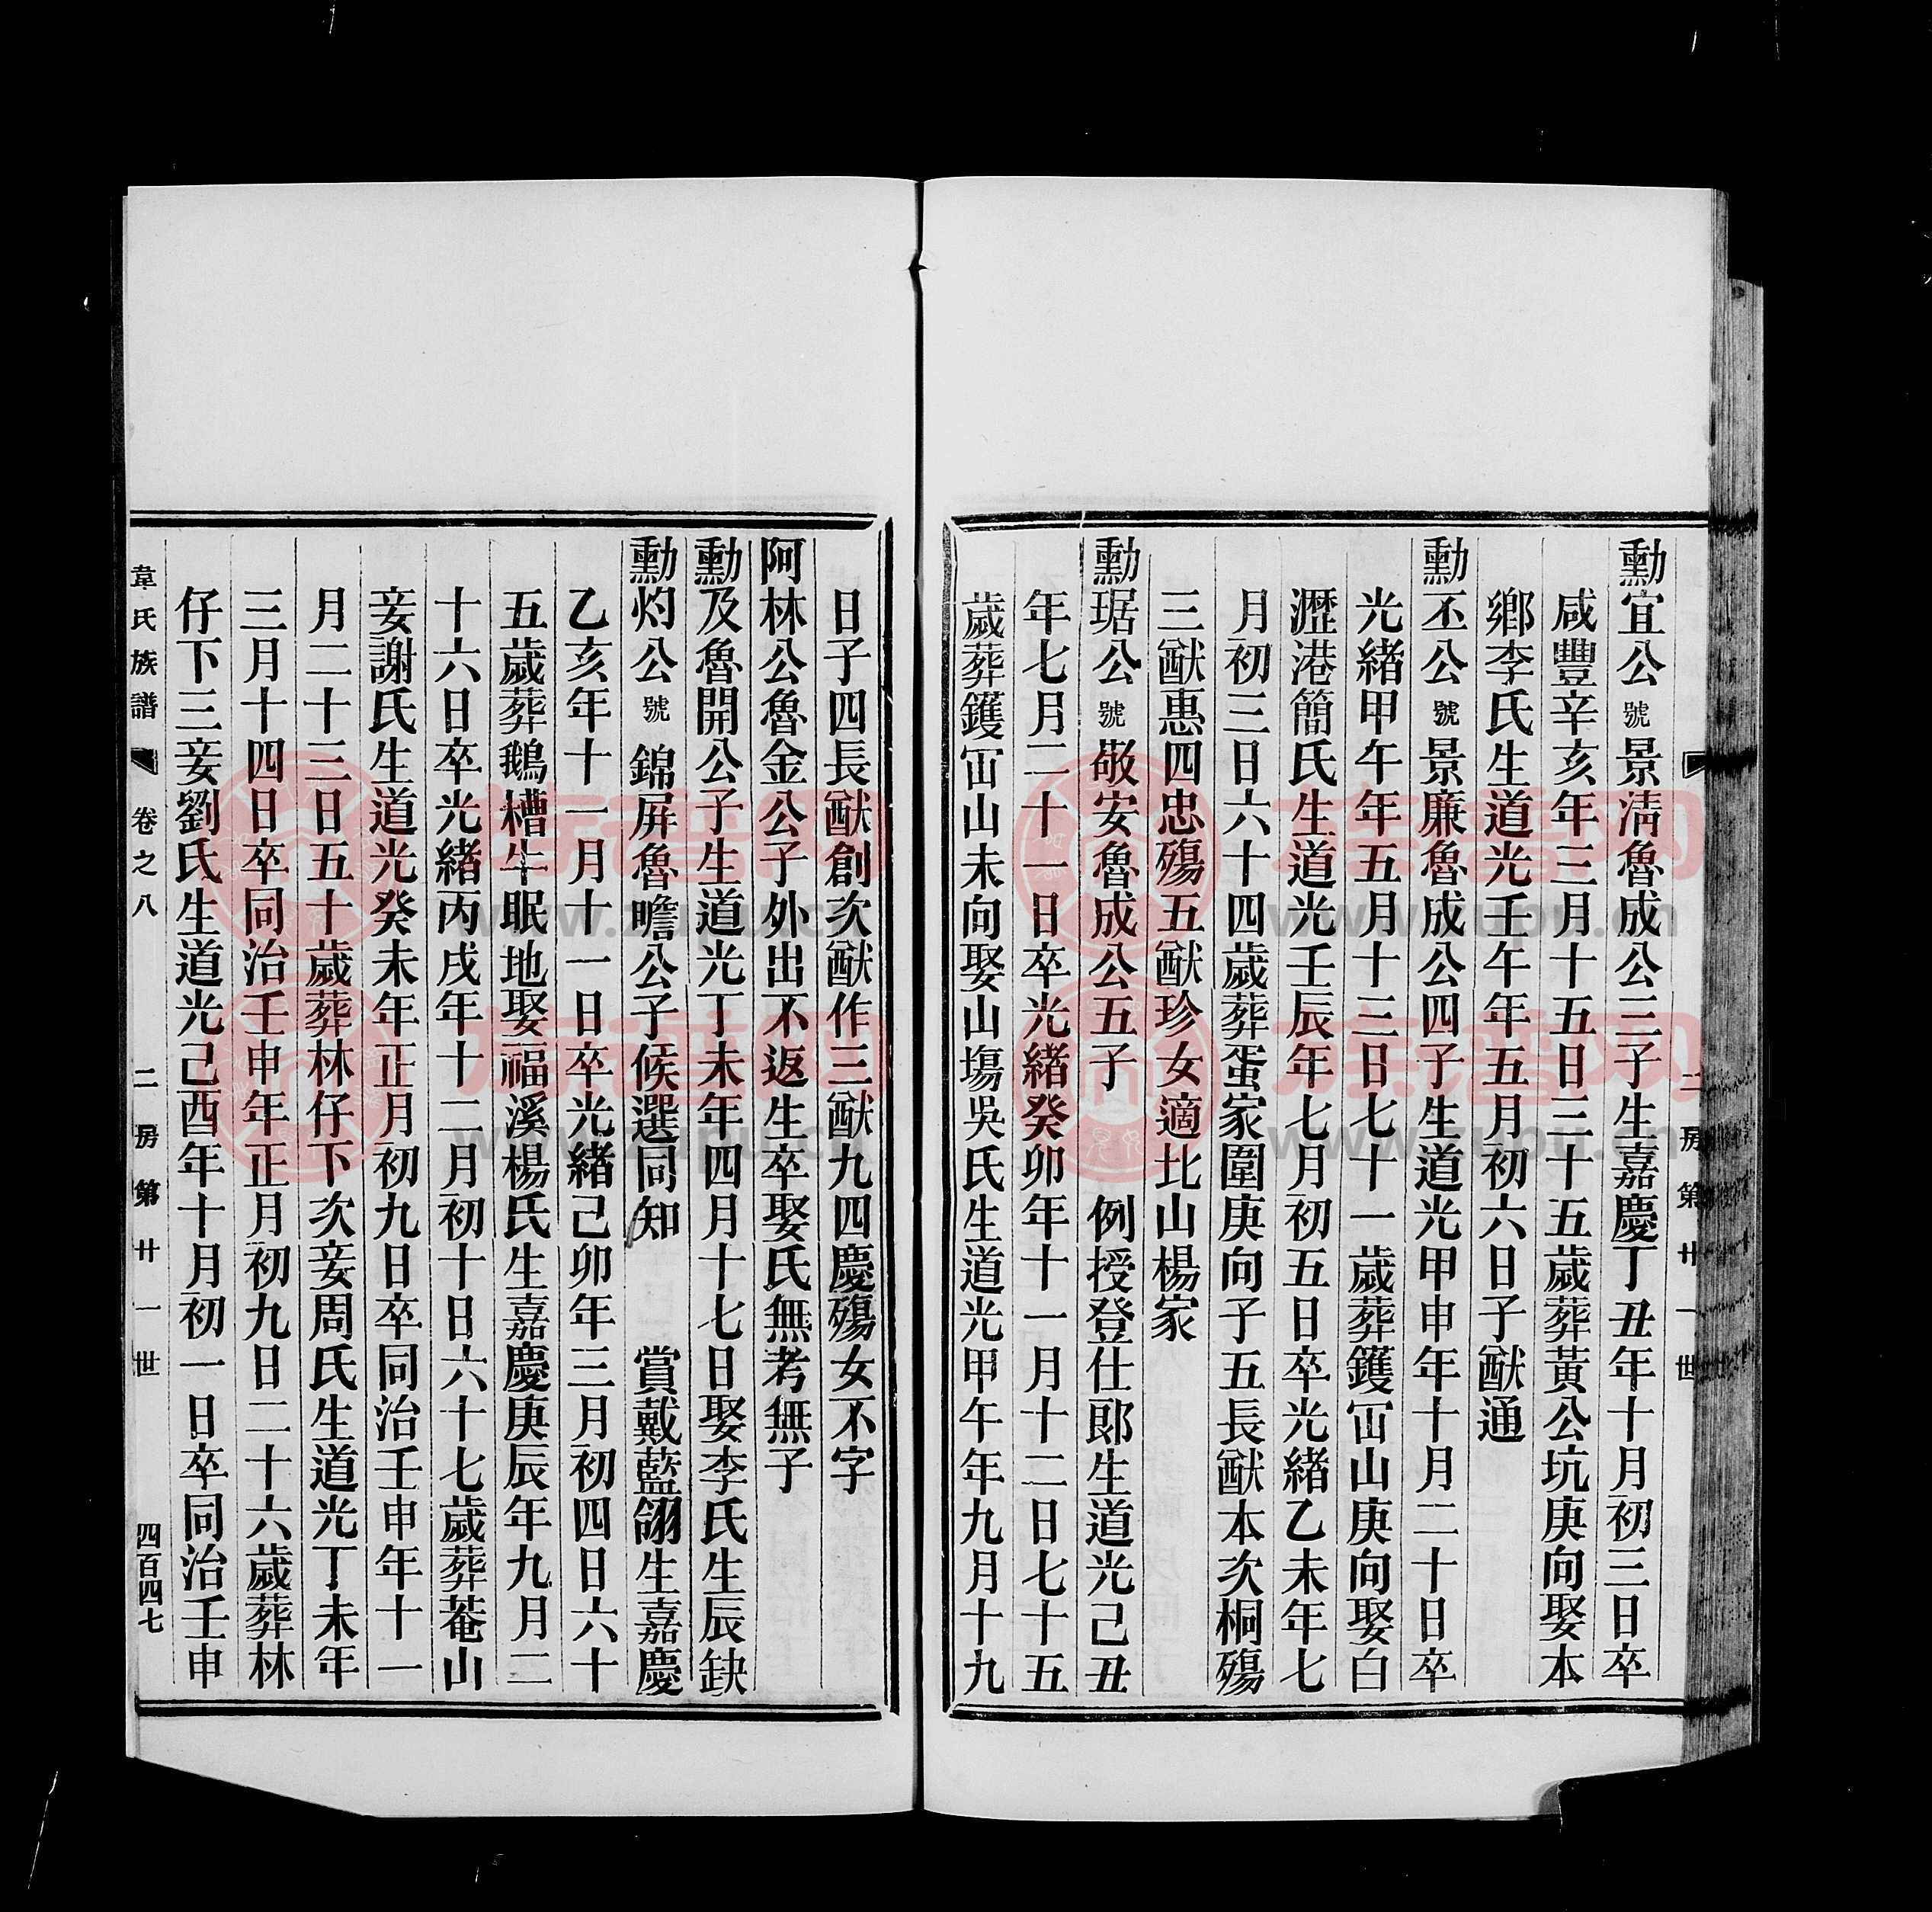 二房第廿一世
勳宜公號景淸魯成公三子生嘉慶丁丑年十月初三日卒
咸豐辛亥年三月十五日三十五歲葬黃公坑庚向娶本
鄉李氏生道光壬午年五月初六日子猷通
勳丕公號景廉魯成公四子生道光甲申年十月二十日卒
光緒甲午年五月十三日七十一歲葬鑊冚山庚向娶白
瀝港簡氏生道光壬辰年七月初五日卒光緒乙未年七
月初三日六十四歲葬蛋家圍庚向子五長猷本次桐殤
三猷惠四忠殤五猷珍女適北山楊家
勳琚公號敬安魯成公五子 例授登仕郎生道光己丑
年七月二十一日卒光緒癸卯年十一月十二日七十五
歲葬鑊冚山未向娶山塲吳氏生道光甲午年九月十九
日子四長猷創次猷作三猷九四慶殤女不字
阿林公魯金公子外出不返生卒娶氏無考無子
勳及魯開公子生道光丁未年四月十七日娶李氏生辰缺
勳灼公號錦屏魯瞻公子候選同知 賞戴藍翎生嘉慶
乙亥年十一月十一日卒光緒己卯年三月初四日六十
五歲葬鵝槽牛眠地娶福溪楊氏生嘉慶庚辰年九月二
十六日卒光緒丙戌年十二月初十日六十七歲葬菴山
妾謝氏生道光癸未年正月初九日卒同治壬申年十一
月二十三日五十歲葬林仔下次妾周氏生道光丁未年
三月十四日卒同治壬申年正月初九日二十六歲葬林
仔下三妾劉氏生道光己酉年十月初一日卒同治壬申
韋氏族譜 卷之八 二房第廿一世 四百四七
族譜网
www.zupu.cn
族譜网
www.zupu.cn
族譜网
www.zupu.cn
族譜网
www.zupu.cn